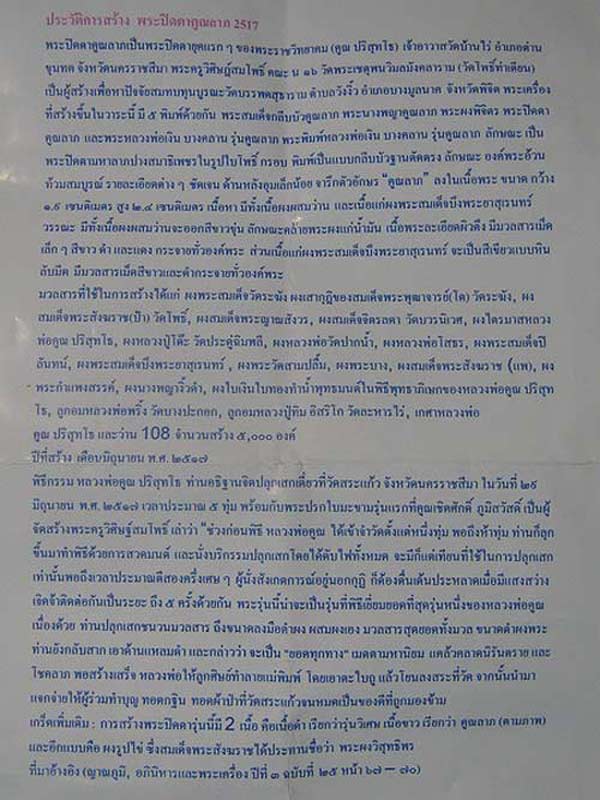 ประวัติการสร้าง พระปิดตาคูณลาภ 2517
พระปิดตาคูณลาภเป็นพระปิดตายุคแรก ๆ ของพระราชวิทยาคม (คูณ ปริสุทโธ) เจ้าอาวาสวัดบ้านไร่ อำเภอด่าน
ขุนทด จังหวัดนครราชสีมา พระครูวิศิษฎ์สมโพธิ์ คณะ น ๑๖ วัดพระเชตุพนวิมลมังคลาราม (วัดโพธิ์ท่าเตียน)
เป็นผู้สร้างเพื่อหาปัจจัยสมทบทุนบูรณะวัดบรรพตสุธาราม ตำบลวังงิ้ว อำเภอบางมูลนาค จังหวัดพิจิต พระเครื่อง
ที่สร้างขึ้นในวาระนี้ มี ๕ พิมพ์ด้วยกัน พระสมเด็จกลีบบัวคูณลาภ พระนางพญาคูณลาภ พระผงพิจิตร พระปิดตา
คูณลาภ และพระหลวงพ่อเงิน บางคลาน รุ่นคูณลาภ พระพิมพ์หลวงพ่อเงิน บางคลาน รุ่นคูณลาภ ลักษณะ เป็น
พระปิดตามหาลาภปางสมาธิเพชรในรูปใบโพธิ์ กรอบ พิมพ์เป็นแบบกลีบบัวฐานตัดตรง ลักษณะ องค์พระอ้วน
ท้วมสมบูรณ์ รายละเอียดต่าง ๆ ชัดเจน ด้านหลังอุมเล็กน้อย จารึกตัวอักษร "คูณลาภ" ลงในเนื้อพระ ขนาด กว้าง
๑.๙ เซนติเมตร สูง ๒.๔ เซนติเมตร เนื้อหา มีทั้งเนื้อผงผสมว่าน และเนื้อแก่ผงพระสมเด็จบึงพระยาสุเรนทร์
วรรณะ มีทั้งเนื้อผงผสมว่านจะออกสีขาวขุ่น ลักษณะคล้ายพระผงแก่น้ำมัน เนื้อพระละเอียดผิวตึง มีมวลสารเม็ด
เล็ก ๆ สีขาว ดำ และแดง กระจายทั่วองค์พระ ส่วนเนื้อแก่ผงพระสมเด็จบึงพระยาสุเรนทร์ จะเป็นสีเขียวแบบหิน
ลับมีด มีมวลสารเม็ดสีขาวและดำกระจายทั่วองค์พระ
มวลสารที่ใช้ในการสร้างได้แก่ ผงพระสมเด็จวัดระฆัง ผงเสากุฏิของสมเด็จพระพุฒาจารย์(โต) วัดระฆัง, ผง
สมเด็จพระสังฆราช(ป๋า) วัดโพธิ์, ผงสมเด็จพระญาณสังวร, ผงสมเด็จจิตรลดา วัดบวรนิเวศ, ผงไตรมาสหลวง
พ่อคูณ ปริสุทโธ, ผงหลวงปู่โต๊ะ วัดประดู่ฉิมพลี, ผงหลวงพ่อวัดปากน้ำ, ผงหลวงพ่อโสธร, ผงพระสมเด็จปิ
ลันทน์, ผงพระสมเด็จบึงพระยาสุเรนทร์ , ผงพระวัดสามปลื้ม, ผงพระบาง, ผงสมเด็จพระสังฆราช (แพ), ผง
พระกำแพงสรรค์, ผงนางพญาผิวดำ, ผงใบเงินใบทองทำน้ำพุทธมนต์ในพิธีพุทธาภิเษกของหลวงพ่อคูณ ปริสุท
โธ, ลูกอมหลวงพ่อพริ้ง วัดบางปะกอก, ลูกอมหลวงปู่ทิม อิสริโก วัดละหารไร่, เกศาหลวงพ่อ
คูณ ปริสุทโธ และว่าน 108 จำนวนสร้าง ๕,๐๐๐ องค์
ปีที่สร้าง เดือนมิถุนายน พ.ศ. ๒๕๑๗
พิธีกรรม หลวงพ่อคูณ ปริสุทโธ ท่านอธิฐานจิตปลุกเสกเดี่ยวที่วัดสระแก้ว จังหวัดนครราชสีมา ในวันที่ ๒๙
มิถุนายน พ.ศ. ๒๕๑๗ เวลาประมาณ ๕ ทุ่ม พร้อมกับพระปรกใบมะขามรุ่นแรกที่คูณเชิดศักดิ์ ภูมิสวัสดิ์ เป็นผู้
จัดสร้างพระครูวิศิษฐ์สมโพธิ์ เล่าว่า "ช่วงก่อนพิธี หลวงพ่อคูณ ได้เข้าจำวัดตั้งแต่หนึ่งทุ่ม พอถึงห้าทุ่ม ท่านก็ลุก
ขึ้นมาทำพิธีด้วยการสวดมนต์ และนั่งบริกรรมปลุกเสกโดยได้ดับไฟทั้งหมด จะมีก็แต่เทียนที่ใช้ในการปลุกเสก
เท่านั้นพอถึงเวลาประมาณตีสองครึ่งเศษ ๆ ผู้นั่งสังเกตการณ์อยู่นอกกุฏิ ก็ต้องตื่นเต้นประหลาดเมื่อมีแสงสว่าง
เจิดจ้าติดต่อกันเป็นระยะ ถึง ๕ ครั้งด้วยกัน พระรุ่นนี้น่าจะเป็นรุ่นที่พิธีเยี่ยมยอดที่สุดรุ่นหนึ่งของหลวงพ่อคูณ
เนื่องด้วย ท่านปลุกเสกชนวนมวลสาร ถึงขนาดลงมือตำผง ผสมผงเอง มวลสารสุดยอดทั้งมวล ขนาดตำผงพระ
ท่านยังกลับสาก เอาด้านแหลมตำ และกล่าวว่า จะเป็น "ยอดทุกทาง" เมตตามหานิยม แคล้วคลาดนิรันตราย และ
โชคลาภ พอสร้างเสร็จ หลวงพ่อให้ลูกศิษย์ทำลายแม่พิมพ์ โดยเอาตะไบถู แล้วโยนลงสระที่วัด จากนั้นนำมา
แจกจ่ายให้ผู้ร่วมทำบุญ ทอดกฐิน ทอดผ้าป่าที่วัดสระแก้วจนหมดเป็นของดีที่ถูกมองข้าม
เกร็ดเพิ่มเติม : การสร้างพระปิดตารุ่นนี้มี 2 เนื้อ คือเนื้อดำ เรียกว่ารุ่นวิเศษ เนื้อขาว เรียกว่า คูณลาภ (ตามภาพ)
และอีกแบบคือ ผงรูปไข่ ซึ่งสมเด็จพระสังฆราชได้ประทานชื่อว่า พระผงวิสุทธิพร
ที่มาอ้างอิง (ญาณภูมิ, อภินิหารและพระเครื่อง ปีที่ ๓ ฉบับที่ ๒๕ หน้า ๖๗ – ๗๐)